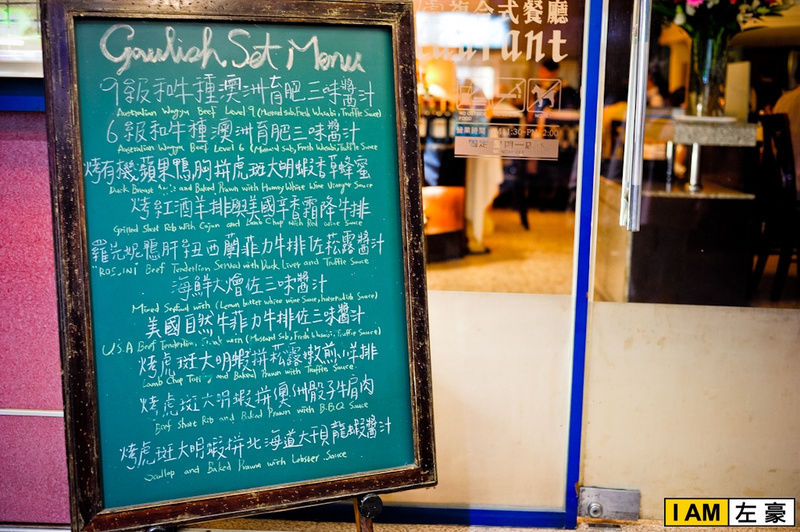 Gaulish Set Menu
9級和牛種澳洲育肥三味醬汁
Australian Wagyu Beef Level 9 (Mustard Sub, Fresh Wasabi, Truffle Sauce)
6級和牛種澳洲育肥三味醬汁
Australian Wagyu Beef Level 6 (Mustard Sub, Fresh Wasabi, Truffle Sauce)
烤有機蘋果鴨胸拼虎斑大明蝦香草蜂蜜
Duck Breast and Baked Prawn with Honey White Wine Vinegar Sauce
烤紅酒羊排與美國辛香霜降牛排
Short Rib with Cajun and Lamb Chop with Red Wine Sauce
羅先妮鴨肝紐西蘭菲力牛排佐菘露醬汁
"ROSSINI" Beef Tenderlion Served with Duck Liver and Truffle Sauce
海鮮大燴佐三味醬汁
Mixed Seafood with (Lemon butter white wine Sauce, horseradish Sauce)
美國自然牛菲力牛排佐三味醬汁
U.S.A Beef Tenderlion with (Mustard Sub, Fresh Wasabi, Truffle Sauce)
烤虎斑大明蝦拼松露嫩煎小羊排
Lamb Chop and Baked Prawn with Truffle Sauce
烤虎斑大明蝦拼澳洲骰子牛肩肉
Beef Short Rib and Baked Prawn with B.B.Q Sauce
烤虎斑大明蝦拼北海道大干貝龍蝦醬汁
Scallop and Baked Prawn with Lobster Sauce
複合式餐廳
營業時間
I AM 左豪